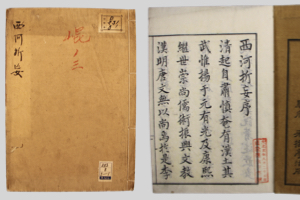 西河折妄
西河折妄序
清起自肅慎奄有漢土其
武惟揚于元有光及康熙
繼世崇尚儒術振興文教
漢明唐文無以尚焉於是李